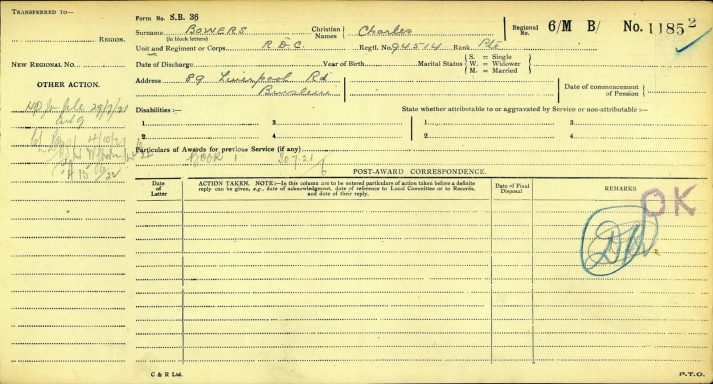 TRANSFERRED TO—
REGION.
NEW REGIONAL No.
OTHER ACTION.
29/9/21
4/10/21
Form No. S.B. 36
Surname BOWERS
(in block letters)
Christian Names Charles
Regional No. 6/M B/ No. 11852
Unit and Regiment or Corps. R D C. Regtl. No. 94514 Rank Pte
Date of Discharge Year of Birth Marital Status
S. = Single
W. = Widower
M. = Married
Address 89 Liverpool Rd
Burslem
Date of commencement of Pension
Disabilities :—
State whether attributable to or aggravated by Service or non-attributable :—
1. 3. 1. 3.
2. 4. 2. 4.
Particulars of Awards for previous Service (if any)
BOOK 1. 20.7.21
POST-AWARD CORRESPONDENCE.
Date of Letter
ACTION TAKEN. NOTE:—In this column are to be entered particulars of action taken before a definite
reply can be given, e.g., date of acknowledgment, date of reference to Local Committee or to Records,
and date of their reply.
Date of Final Disposal
REMARKS
OK
C & R Ltd.
P.T.O.